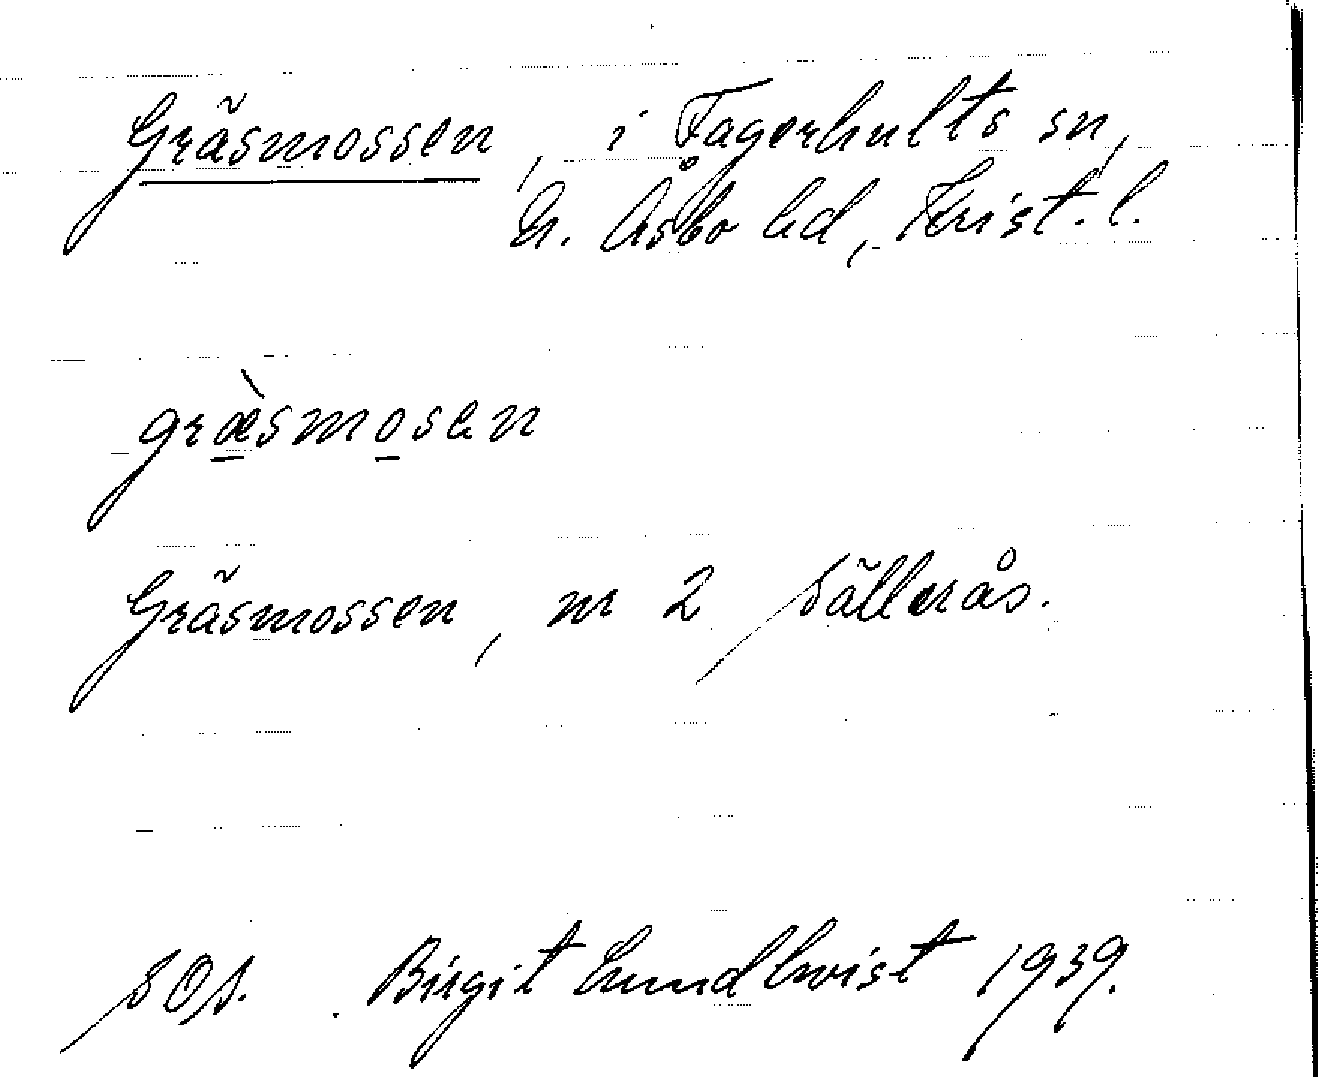 Gräsmossen, i Fagerhults sn,
N. Åsbo hd, Krist. l.
græ̀smosen
Gräsmossen, nr 2 Källerås.
SOA. Birgit Lundkvist 1939.